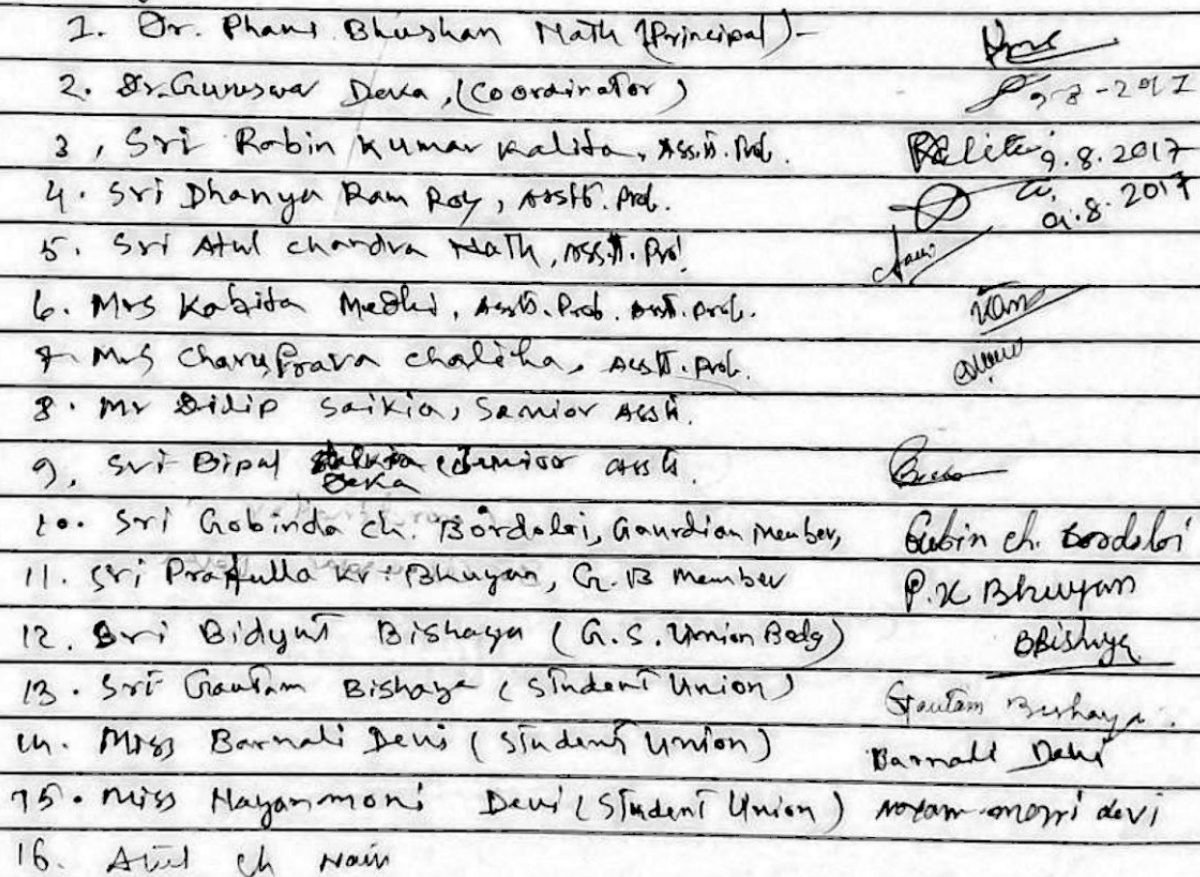 1. Dr. Phani Bhushan Nath (Principal) -
2. Dr. Guneswar Deka, (Coordinator) 9-8-2017
3, Sri Robin Kumar Kalita, Asstt. Prof. RKalita 9.8.2017
4. Sri Dhanya Ram Roy, Asstt. Prof. 9.8.2017
5. Sri Atul Chandra Nath, Asstt. Prof.
6. Mrs Kabita Medhi, Asstt. Prof. Asst. Prof.
7. Mrs Charuprava Chaliha, Asstt. Prof.
8. Mr Dilip Saikia, Sanior Asstt.
9, Sri Bipal Deka (Junior Asstt.
10. Sri Gobinda Ch. Bordoloi, Gaurdian Member, Gubin ch. Bordoloi
11. Sri Prafulla Kr. Bhuyan, G.B Member P.K Bhuyan
12. Sri Bidyut Bishaya (G.S. Union Bedg) BBishya
13. Sri Gautam Bishaya (Student Union) Gautam Bishaya.
14. Miss Barnali Devi (Student Union) Barnali Devi
15. Miss Nayanmoni Devi (Student Union) Noyan moni devi
16. Atul ch Nath